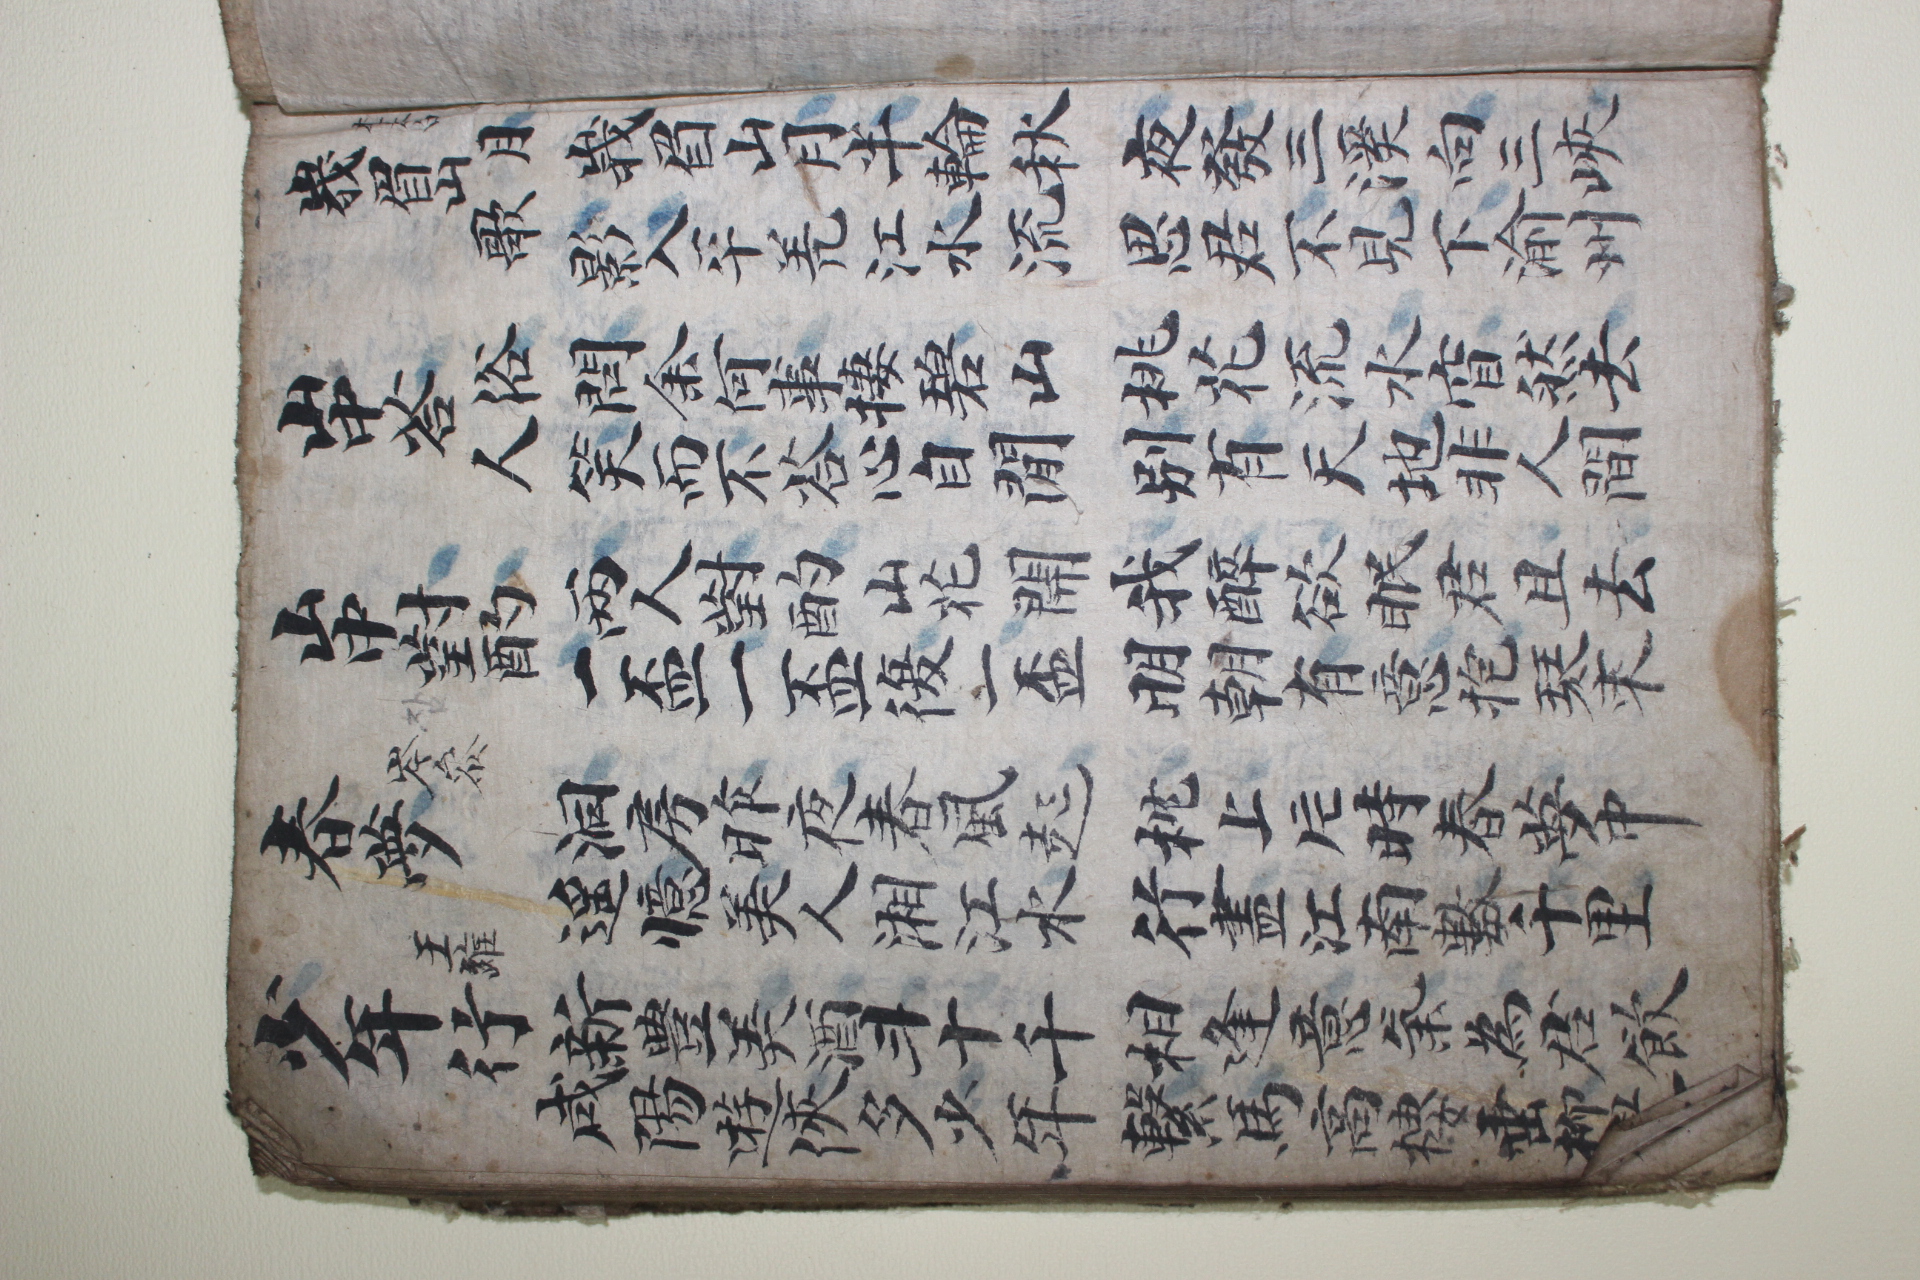 峩眉山月歌
李太白
峩眉山月半輪秋 夜發三溪向三峽
影入平羌江水流 思君不見下渝州
山中荅俗人
問余何事棲碧山 桃花流水窅然去
笑而不荅心自閒 別有天地非人間
山中對酌
兩人對酌山花開 我醉欲眠君且去
一盃一盃復一盃 明朝有意抱琴來
잠
岑參
春夢
洞房昨夜春風起 枕上片時春夢中
遙憶美人湘江水 行盡江南數千里
王維
少年行
新豊美酒斗十千 相逢意氣為君飲
咸陽遊俠多少年 繫馬高樓垂柳